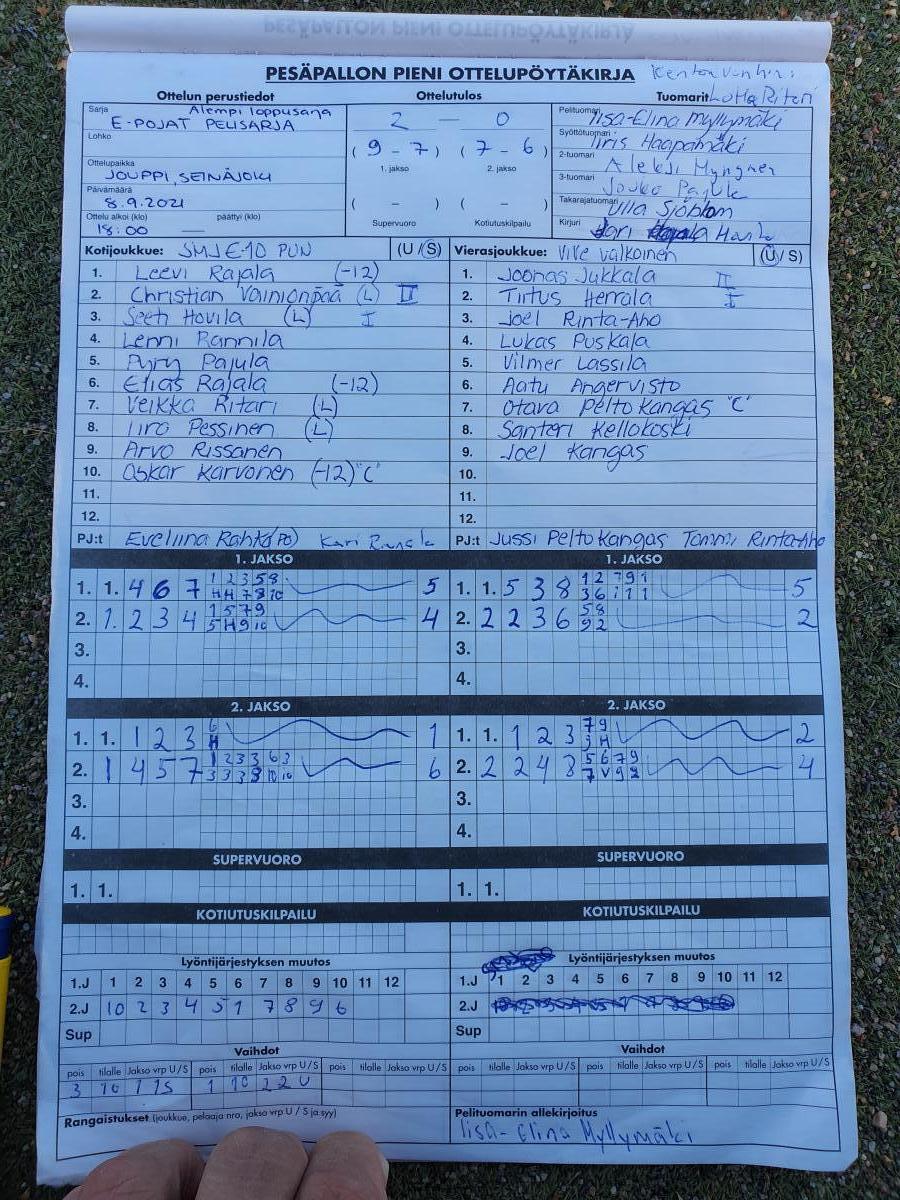 PESÄPALLON PIENI OTTELUPÖYTÄKIRJA
Ottelun perustiedot
Ottelutulos
Tuomarit
Lotta Ritari
Sarja
Alempi loppusarja
E-POJAT PELISARJA
Lohko
Ottelupaikka
JOUPPI, SEINÄJOKI
Päivämäärä
8.9.2021
Ottelu alkoi (klo) päättyi (klo)
18:00 —
2 — 0
( 9 - 7 ) ( 7 - 6 )
1. jakso 2. jakso
( - ) ( - )
Supervuoro Kotiutuskilpailu
Pelituomari
Iisa-Elina Myllymäki
Syöttötuomari
Iiris Haapamäki
2-tuomari
Aleksi
3-tuomari
Jouko Pajula
Takarajatuomari
Ulla Sjöblom
Kirjuri
Kotijoukkue: SMJ E-10 PUN (U / S)
1. Leevi Rajala (-12)
2. Christian Vainionpää (L) II
3. Seeti Hovila (L) I
4. Lenni Rannila
5. Pyry Pajula
6. Elias Rajala (-12)
7. Veikka Ritari (L)
8. Iiro Pessinen (L)
9. Arvo Rissanen
10. Oskar Karvonen (-12) "C"
11.
12.
PJ:t Eveliina Rahko (PO) Kari
Vierasjoukkue: ViVe valkoinen (U / S)
1. Joonas Jukkala II
2. Tiitus Herrala I
3. Joel Rinta-Aho
4. Lukas Puskala
5. Vilmer Lassila
6. Aatu Angervisto
7. Otava Peltokangas "C"
8. Santeri Kellokoski
9. Joel Kangas
10.
11.
12.
PJ:t Jussi Peltokangas Tommi Rinta-Aho
1. JAKSO
1. 1. 4 6 7 1 2 3 5 8 5
H H 7 8 10
2. 1. 2 3 4 1 5 7 9 4
5 H 9 10
3.
4.
1. JAKSO
1. 1. 5 3 8 1 2 7 9 1 5
3 6 1 1 1
2. 2 2 3 6 5 8 2
9 2
3.
4.
2. JAKSO
1. 1. 1 2 3 6 1
H
2. 1 4 5 7 1 2 3 3 6 3 6
3 3 3 3 10 10
3.
4.
2. JAKSO
1. 1. 1 2 3 7 9 2
3 H
2. 2 2 4 3 5 6 7 9 4
7 V 9 2
3.
4.
SUPERVUORO
1. 1.
SUPERVUORO
1. 1.
KOTIUTUSKILPAILU
KOTIUTUSKILPAILU
Lyöntijärjestyksen muutos
1.J 1 2 3 4 5 6 7 8 9 10 11 12
2.J 10 2 3 4 5 1 7 8 9 6
Sup
Lyöntijärjestyksen muutos
1.J 1 2 3 4 5 6 7 8 9 10 11 12
2.J
Sup
Vaihdot
pois tilalle Jakso vrp U / S pois tilalle Jakso vrp U / S pois tilalle Jakso vrp U / S
3 10 1 1 S 1 10 2 2 U
Vaihdot
pois tilalle Jakso vrp U / S pois tilalle Jakso vrp U / S pois tilalle Jakso vrp U / S
Rangaistukset (joukkue, pelaaja nro, jakso vrp U / S ja syy)
Pelituomarin allekirjoitus
Iisa-Elina Myllymäki